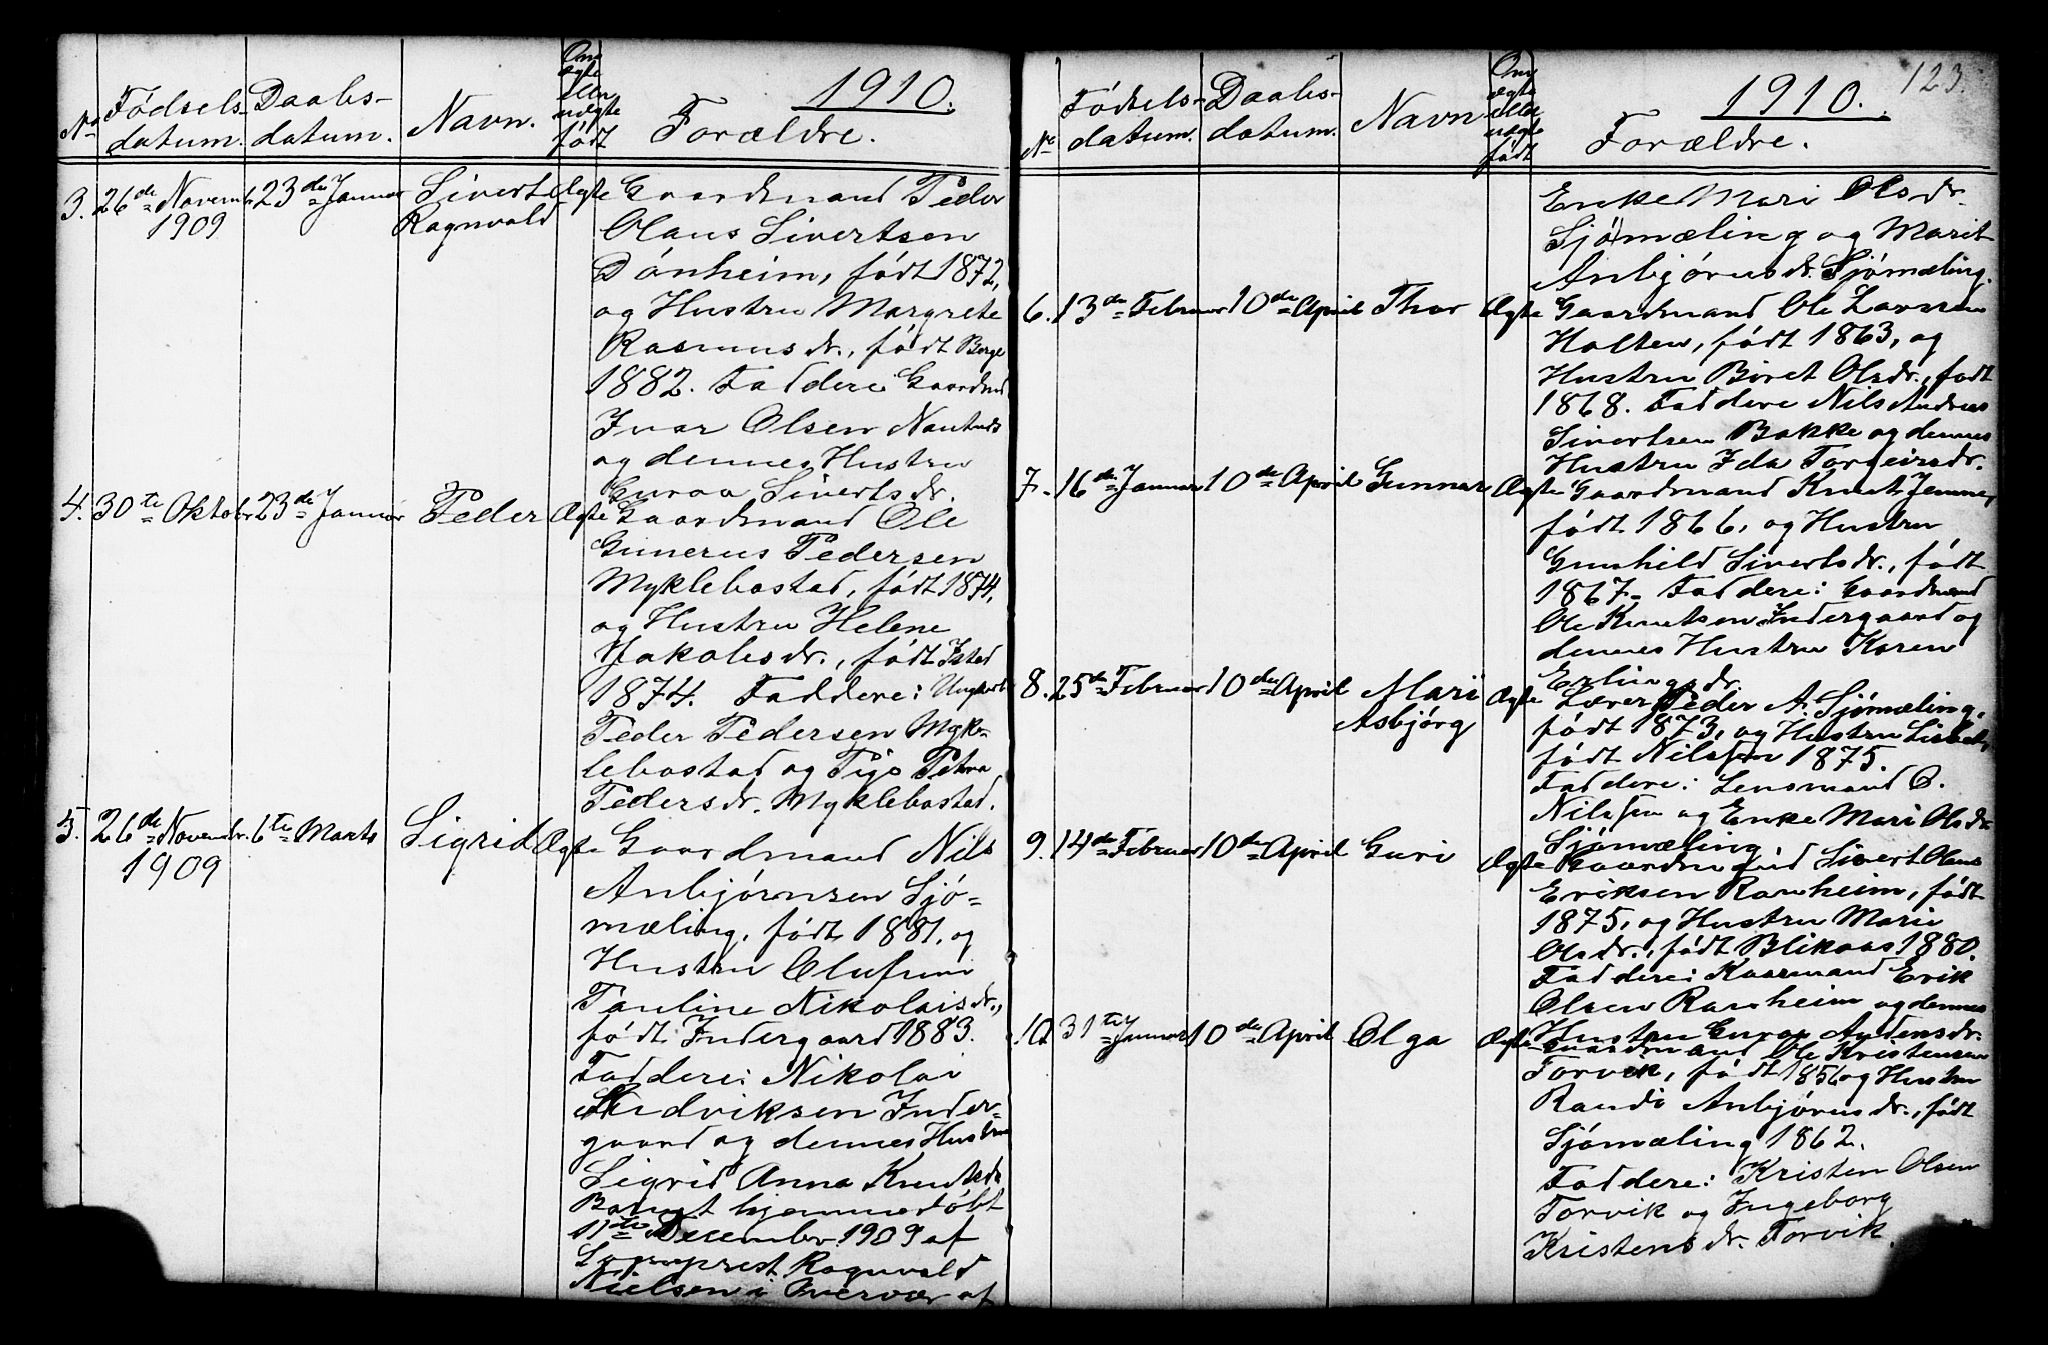 1910.
No Fødsels-datum. Daabs-datum. Navn. Om ægte eller uægte født Forældre.
3. 26de Novem. 1909 23de Januar Sivert Ragnvald Ægte Gaardmand Peder
Olaus Sivertsen
Dønheim, født 1872,
og Hustru Margrete
Rasmusdr., født Berge
1882. Faddere Gaardmd
Ivar Olsen
og dennes Hustru
Guroa Sivertsdr.
4. 30te Oktobr 23de Januar Peder Ægte Gaardmand Ole
Gunerus Pedersen
Myklebostad, født 1874,
og Hustru Helene
Jakobsdr., født Istad
1874. Faddere: Ungkarl
Peder Pedersen Myk-
lebostad og Pige Petra
Pedersdr. Myklebostad.
5. 26de Novembr. 1909 6te Marts Sigrid Ægte Gaardmand Nils
Anbjørnsen Sjø-
mæling, født 1881, og
Hustru Olufine
Pauline Nikolaisdr.,
født Indergaard 1883.
Faddere: Nikolai
Ludviksen Inder-
gaard og dennes Hustru
Sigrid Anna Knudsdr
Barnet hjemmedøbt
11te December 1909 af
Sogneprest Ragnvald
Nielsen i Overvær af
123.
1910.
No Fødsels-datum. Daabs-datum. Navn Om ægte eller uægte født Forældre.
Enke Mari Olsdr.
Sjømæling og Marit
Anbjørnsdr. Sjømæling.
6. 13de Februar 10de April Thor Ægte Gaardmand Ole Larsen
Holten, født 1863, og
Hustru Beret Olsdr., født
1868. Faddere Nils Andreas
Sivertsen Bakke og dennes
Hustru Ida Torgeirsdr.
7. 16de Januar 10de April Gunnar Ægte Gaardmand Knut
født 1866, og Hustru
Gunhild Sivertsdr., født
1867. Faddere: Gaardmand
Ole Knutsen Indergaard og
dennes Hustru Karen
Erlingsdr.
8. 25de Februar 10de April Mari Asbjørg Ægte Lærer Peder A. Sjømæling,
født 1873, og Hustru
født Nilssen 1875.
Faddere: Lensmand O.
Nilssen og Enke Mari Olsdr
Sjømæling
9. 14de Februar 10de April Guri Ægte Gaardmand Sivert Olaus
Eriksen Ranheim, født
1875, og Hustru Marie
Olsdr., født Blikaas 1880.
Faddere: Kaarmand Erik
Olsen Ranheim og dennes
Hustru Guroa
10. 31te Januar 10de April Olga Ægte Gaardmand Ole Kristensen
Torvik, født 1856 og Hustru
Randi Anbjørnsdr., født
Sjømæling 1862.
Faddere: Kristen Olsen
Torvik og Ingeborg
Kristensdr. Torvik.